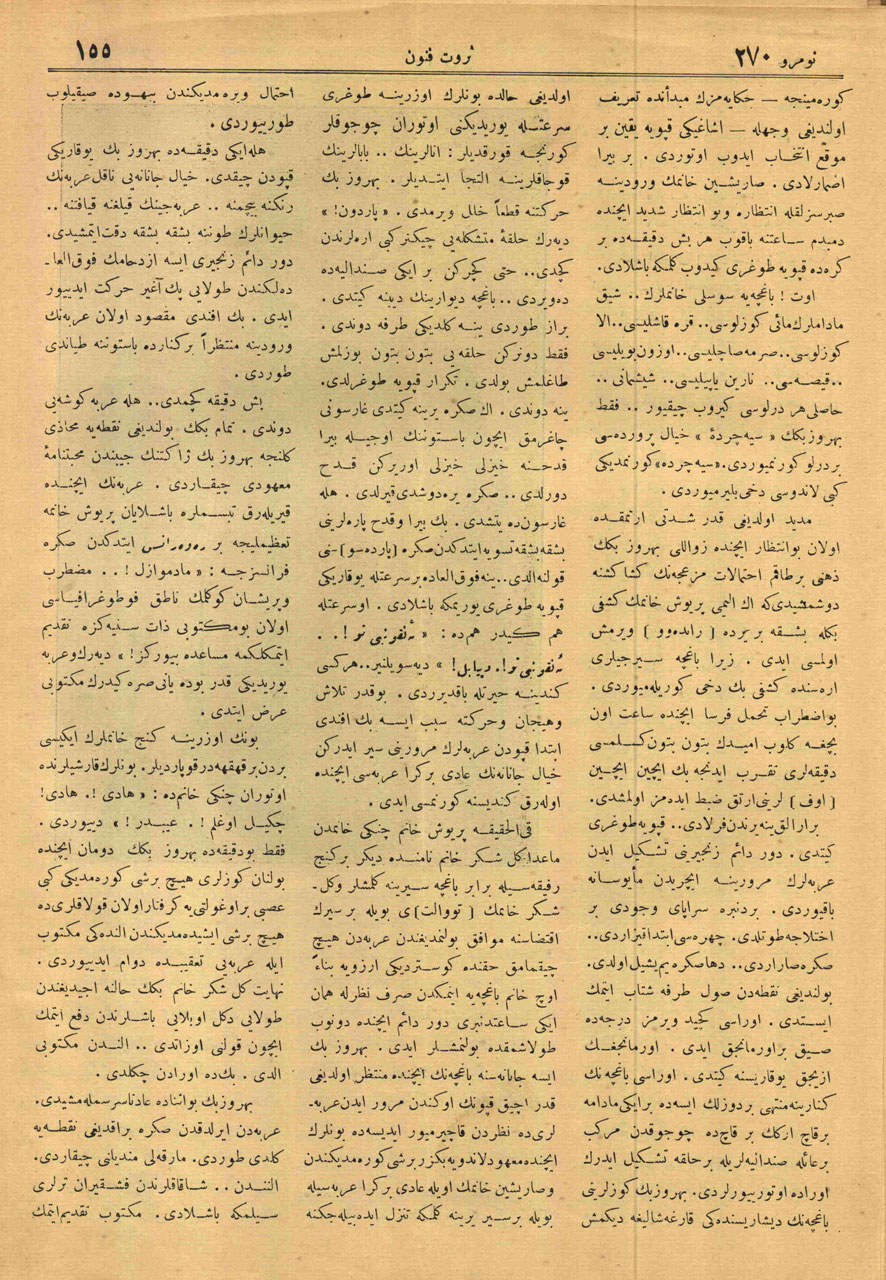 نومرو ٢٧٠
ثروت فنون
١٥٥
كوره مينجه — حكايه مزك مبدأنده تعريف
اولنديغى وجهله — اشاغيكى قپويه يقين بر
موقع انتخاب ايدوب اوتوردى . بر بيرا
اصمارلادى . صاريشين خانمك ورودينه
صبرسزلقله انتظاره وبو انتظار شديد ايچنده
دمبدم ساعتنه باقوب هر بش دقيقه ده بر
كره ده قپويه طوغرى كيدوب كلمكه باشلادى.
اوت ! باغچه يه سوسلى خانملرك .. شيق
مادامارك مائى كوزلوسى.. قره قاشليسى.. الا
كوزلوسى.. صرمه صاچليسى.. اوزون بويليسى
.. قيصه سى.. نارين ياپيليسى.. شيشمانى ..
حاصلى هر درلوسى كيروب چيقيور .. فقط
بهروز بكك « سيه چردهٔ » خيال پرورده سى
بر درلو كورنميوردى. «سيه چرده» كورنمديكى
كبى لاندوسى دخى بليرميوردى .
مديد اولديغى قدر شدتى ارتمقده
اولان بو انتظار ايچنده زواللى بهروز بكك
ذهنى برطاقم احتمالات مزعجه نك كشاكشنه
دوشمشيدى كه اك اليمى پريوش خانمك كشفى
بكله بشقه بريرده ( رانده وو ) ويرمش
اولمسى ايدى . زيرا باغچه سيرجيلرى
اره سنده كشفى بك دخى كوريله ميوردى .
بو اضطراب تحمل فرسا ايچنده ساعت اون
بچغه كلوب اميدك بتون بتون كسلمسى
دقيقه لرى تقرب ايدنجه بك ايچين ايچين
( اوف ) لرينى ارتق ضبط ايده مز اولمشدى.
برارالق ينه يرندن فرلادى.. قپويه طوغرى
كيتدى . دور دائم زنجيرينى تشكيل ايدن
عربه لرك مرورينه ايچريدن مأيوسانه
باقيوردى . بردنبره سراپاى وجودى بر
اختلاجه طوتلدى. چهره سى ابتدا قيزاردى..
صكره صاراردى.. دها صكره يم يشيل اولدى.
بولنديغى نقطه دن صول طرفه شتاب ايتمك
ايستدى . اوراسى كچيد ويرمز درجه ده
صيق بر اورمانجق ايدى . اورمانجغك
ازيجق يوقاريسنه كيتدى . اوراسى باغچه نك
كنارينه منتهى بر دوزلك ايسه ده بر ايكى مادامه
برقاچ اركك بر قاچ ده چوجوقدن مركب
بر عائله صنداليه لريله بر حلقه تشكيل ايدرك
اوراده اوتورييورلردى. بهروز بك كوزلرينى
باغچه نك ديشاريسنده كى قارغه شالينه ديكمش
اولديغى حالده بونلرك اوزرينه طوغرى
سرعتله يوريديكنى اوتوران چوجوقلر
كورنجه قورقديلر : انالرينك .. بابالرينك
قوجاقلرينه التجا ايتديلر . بهروز بك
حركتنه قطعاً خلل ويرمدى . « پاردون! »
ديه رك حلقهٔ متشكله يى چيكنر كبى اره لرندن
كچدى.. حتى كچركن بر ايكى صنداليه ده
ده ويردى .. باغچه ديوارينك ديبنه كيتدى .
براز طوردى ينه كلديكى طرفه دوندى .
فقط دونركن حلقه يى بتون بتون بوزلمش
طاغلمش بولدى . تكرار قپويه طوغرلدى.
ينه دوندى. اك صكره يرينه كيتدى غارسونى
چاغرمق ايچون باستوننك اوجيله بيرا
قدحنه خيزلى خيزلى اوريركن قدح
دورلدى .. صكره يره دوشدى قيرلدى . هله
غارسون ده يتشدى . بك بيرا وقدح پاره لرينى
بشقه بشقه تسويه ايتدكدن صكره (پارده سو) سنى
قولنه الدى.. ينه فوق العاده بر سرعتله يوقاريكى
قپويه طوغرى يوريمكه باشلادى . او سرعتله
هم كيدر هم ده : « ئه نقونبى تو ! . .
ئه نقونبى تو !. ويپابل! » ديه سويلنير.. هركسى
كندينه حيرتله باقديرردى . بوقدر تلاش
وهيجان وحركته سبب ايسه بك افندى
ابتدا قپودن عربه لرك مرورينى سير ايدركن
خيال جانانه نك عادى بر كرا عربه سى ايچنده
اوله رق كنديسنه كورنمسى ايدى .
فى الحقيقه پريوش خانم چنكى خانمدن
ماعدا كل شكر خانم نامنده ديكر بر كنج
رفيقه سيله برابر باغچه سيرينه كلمشلر وكل
شكر خانمك ( تووالت ) ى بويله بر سيرك
اقتضاسنه موافق بولنمديغندن عربه دن هيچ
چيقمامق حقنده كوستردیكى ارزويه بناءً
اوچ خانم باغچه يه ايتمكدن صرف نظرله همان
ايكى ساعتدنبرى دور دائم ايچنده دونوب
طولاشمقده بولنمشلر ايدى . بهروز بك
ايسه جانانه سنه باغچه نك ايچنده منتظر اولديغى
قدر آچيق قپونك اوكندن مرور ايدن عربه
لرى ده نظردن قاچيرميور ايديسه ده بونلرك
ايچنده معهود لاندويه بكزر برشى كوره مديكندن
وصاريشين خانمك اويله عادى بر كرا عربه سيله
بويله بر سير يرينه كلمكه تنزل ايده بيله جكنه
احتمال ويره مديكندن بيهوده صيقيلوب
طورييوردى .
هله ايكى دقيقه ده بهروز بك يوقاريكى
قپودن چيقدى. خيال جانانه يى ناقل عربه نك
رنكنه بيچمنه .. عربه جينك قيلغنه قيافتنه ..
حيوانلرك طوننه بشقه بشقه دقت ايتمشيدى.
دور دائم زنجيرى ايسه ازدحامك فوق العا
ده لكندن طولايى پك آغير حركت ايدييور
ايدى . بك افندى مقصود اولان عربه نك
ورودينه منتظراً بر كنارده باستوننه طياندى
طوردى .
بش دقيقه كچمدى.. هله عربه كوشه يى
دوندى . تمام بكك بولنديغى نقطه يه محاذى
كلنجه بهروز بك ژاكتنك جيبندن محبتنامهٔ
معهودى چيقاردى . عربه نك ايچنده
قيريله رق تبسملره باشلايان پريوش خانمه
تعظيمليجه بر رەورانس ايتدكدن صكره
فرانسزجه : « مادموازل ! . . مضطرب
وپريشان كوكلمك ناطق فوطوغرافياسى
اولان بو مكتوبى ذات سنيه كزه تقديم
ايتمكلكمه مساعده بيوركز! » ديه رك وعربه
يوريديكى قدر بوده يانى صره كيدرك مكتوبى
عرض ايتدى .
بونك اوزرينه كنج خانملرك ايكيسى
بردن بر قهقهه در قوپارديلر. بونلرك قارشيلرنده
اوتوران چنكى خانم ده : « هادى !. هادى!
چكيل اوغلم ! . عيبدر ! » دييوردى .
فقط بو دقيقه ده بهروز بكك دومان ايچنده
بولنان كوزلرى هيچ برشى كوره مديكى كبى
عصبى بر اوغولتى يه كرفتار اولان قولاقلرى ده
هيچ برشى ايشيده مديكندن النده كى مكتوب
ايله عربه يى تعقيبده دوام ايدييوردى .
نهايت كل شكر خانم بكك حالنه آجيديغندن
طولايى دكل او بلايى باشلرندن دفع ايتمك
ايچون قولنى اوزاتدى .. النندن مكتوبى
الدى . بك ده اورادن چكلدى .
بهروز بك بو اثناده عادتا سرسمله مشيدى.
عربه دن ايرلدقدن صكره براقديغى نقطه يه
كلدى طوردى. مارقه لى منديلنى چيقاردى.
آلنندن .. شاقاقلرندن فشقيران ترلرى
سيلمكه باشلادى . مكتوب تقديم ايتمك